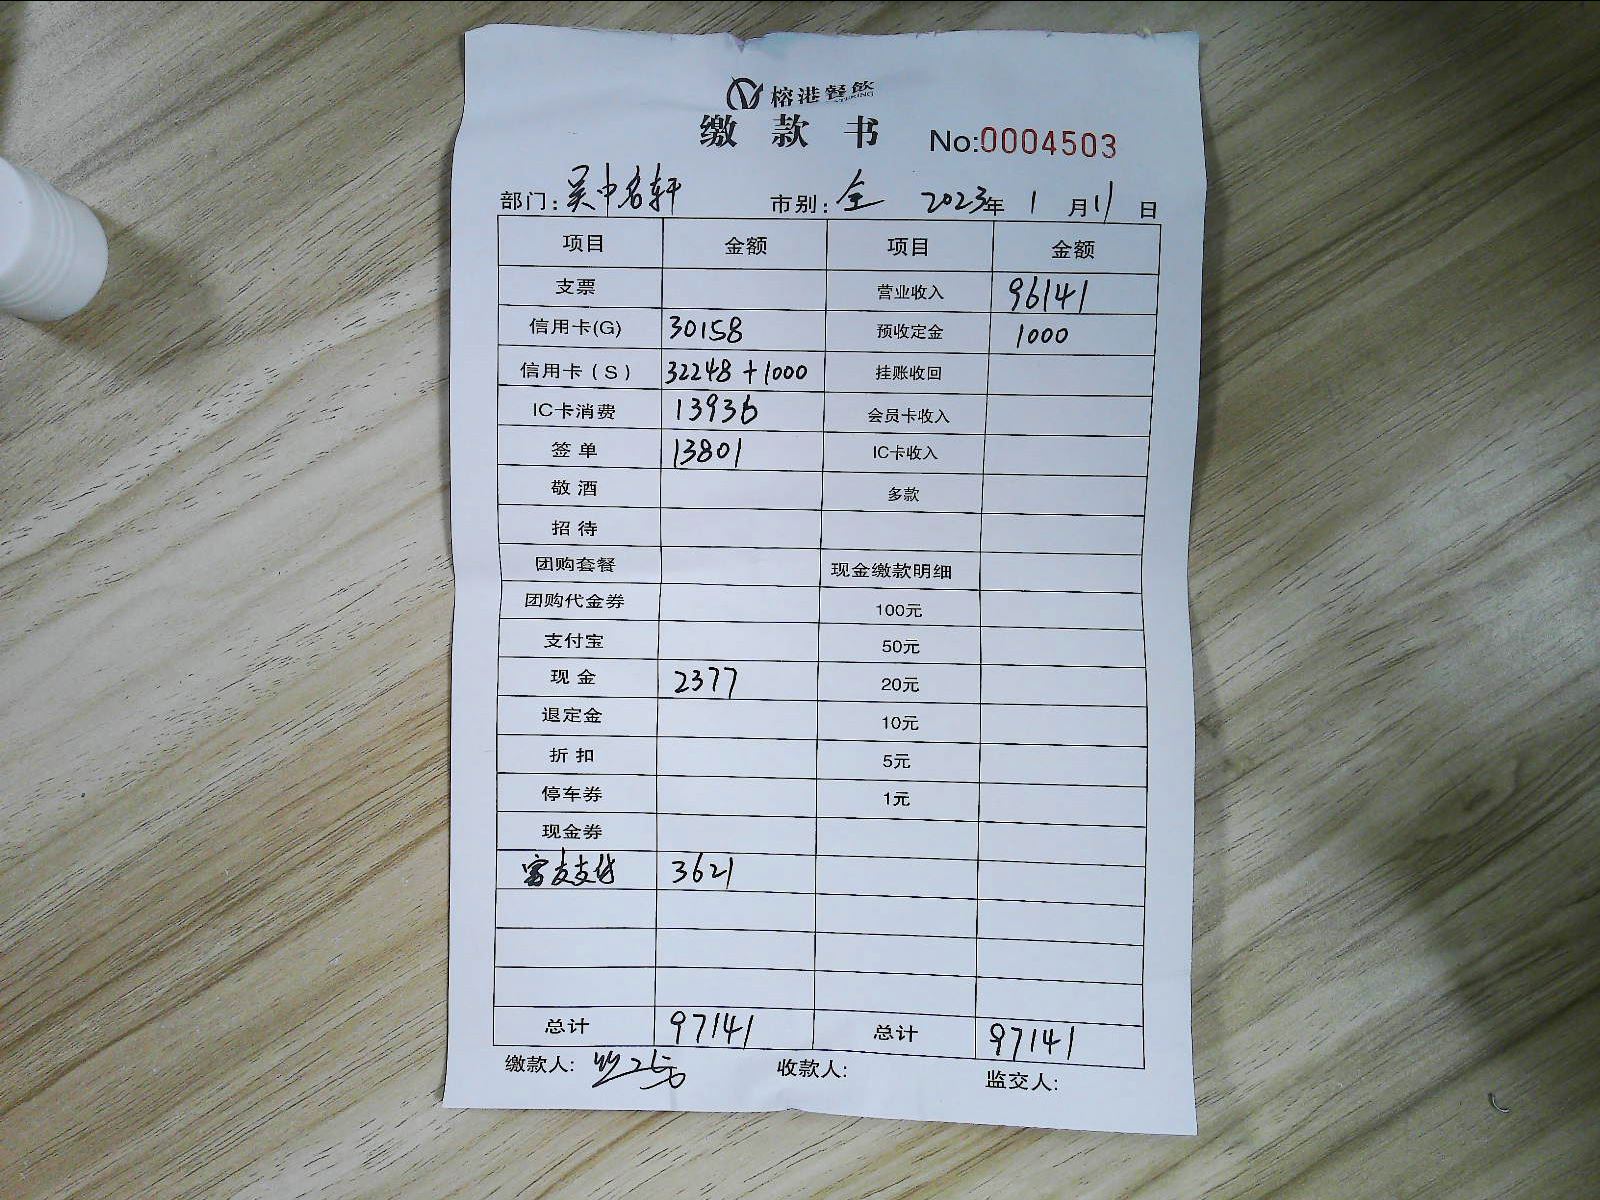 榕港餐飲
缴款书 No:0004503
部门:吴中名轩 市别:全 2023年1月11日
项目 金额 项目 金额
支票 营业收入 96141
信用卡(G) 30158 预收定金 1000
信用卡(S) 32248+1000 挂账收回
IC卡消费 13936 会员卡收入
签单 13801 IC卡收入
敬酒 多款
招待
团购套餐 现金缴款明细
团购代金券 100元
支付宝 50元
现金 2377 20元
退定金 10元
折扣 5元
停车券 1元
现金券
富友支付 3621
总计 97141 总计 97141
缴款人: 收款人: 监交人: